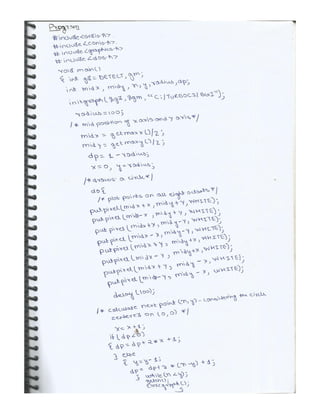 Program
#include<stdio.h>
#include<conio.h>
#include<graphics.h>
#include<dos.h>
void main()
{ int gd= DETECT, gm;
int midx, midy, x, y, radius, dp;
initgraph(&gd, &gm, "C:/TURBOC3/BGI");
radius=100;
/* mid position of x axis and y axis */
midx = getmaxx()/2;
midy = getmaxy()/2;
dp= 1 - radius;
x=0, y=radius;
/* draws a circle */
do{
/* plot points on all eight octants */
putpixel(midx+x, midy+y, WHITE);
putpixel(midx-x, midy+y, WHITE);
putpixel(midx+x, midy-y, WHITE);
putpixel(midx-x, midy-y, WHITE);
putpixel(midx+y, midy+x, WHITE);
putpixel(midx-y, midy+x, WHITE);
putpixel(midx+y, midy-x, WHITE);
putpixel(midx-y, midy-x, WHITE);
delay(100);
/* calculate next point (x,y)- considering the circle
centered on (0,0) */
x=x+1;
if(dp<0)
{ dp=dp+2*x+1;
} else
{ y=y-1;
dp= dp+2*(x-y)+1;
} while(x<y);
getch();
closegraph();
}